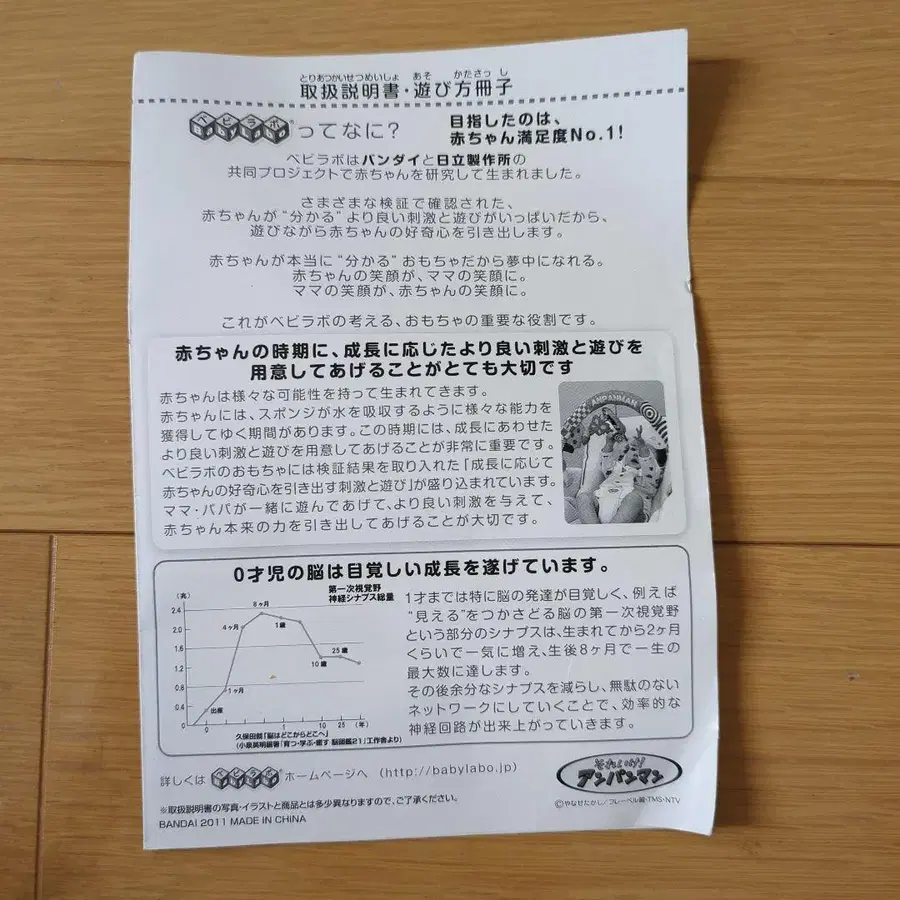 とりあつかいせつめいしょ あそ かたさっし
取扱説明書・遊び方冊子
ベビラボ®ってなに？
目指したのは、
赤ちゃん満足度No.1!
ベビラボはバンダイと日立製作所の
共同プロジェクトで赤ちゃんを研究して生まれました。
さまざまな検証で確認された、
赤ちゃんが“分かる”より良い刺激と遊びがいっぱいだから、
遊びながら赤ちゃんの好奇心を引き出します。
赤ちゃんが本当に“分かる”おもちゃだから夢中になれる。
赤ちゃんの笑顔が、ママの笑顔に。
ママの笑顔が、赤ちゃんの笑顔に。
これがベビラボの考える、おもちゃの重要な役割です。
赤ちゃんの時期に、成長に応じたより良い刺激と遊びを
用意してあげることがとても大切です
赤ちゃんは様々な可能性を持って生まれてきます。
赤ちゃんには、スポンジが水を吸収するように様々な能力を
獲得してゆく期間があります。この時期には、成長にあわせた
より良い刺激と遊びを用意してあげることが非常に重要です。
ベビラボのおもちゃには検証結果を取り入れた「成長に応じて
赤ちゃんの好奇心を引き出す刺激と遊び」が盛り込まれています。
ママ・パパが一緒に遊んであげて、より良い刺激を与えて、
赤ちゃん本来の力を引き出してあげることが大切です。
ANPANMAN
0才児の脳は目覚しい成長を遂げています。
第一次視覚野
神経シナプス総量
(兆)
2.4
2.0
1.6
1.2
0.8
0.4
0
出産
1ヶ月
4ヶ月
8ヶ月
1歳
10歳
25歳
0 1 10 25 (年)
久保田競「脳はどこからどこへ」
(小泉英明編著「育つ・学ぶ・癒す 脳図鑑21」工作舎より)
1才までは特に脳の発達が目覚しく、例えば
“見える”をつかさどる脳の第一次視覚野
という部分のシナプスは、生まれてから2ヶ月
くらいで一気に増え、生後8ヶ月で一生の
最大数に達します。
その後余分なシナプスを減らし、無駄のない
ネットワークにしていくことで、効率的な
神経回路が出来上がっていきます。
詳しくは ベビラボ® ホームページへ (http://babylabo.jp)
それいけ!
アンパンマン
©やなせたかし/フレーベル館・TMS・NTV
※取扱説明書の写真・イラストと商品とは多少異なりますので、ご了承ください。
BANDAI 2011 MADE IN CHINA